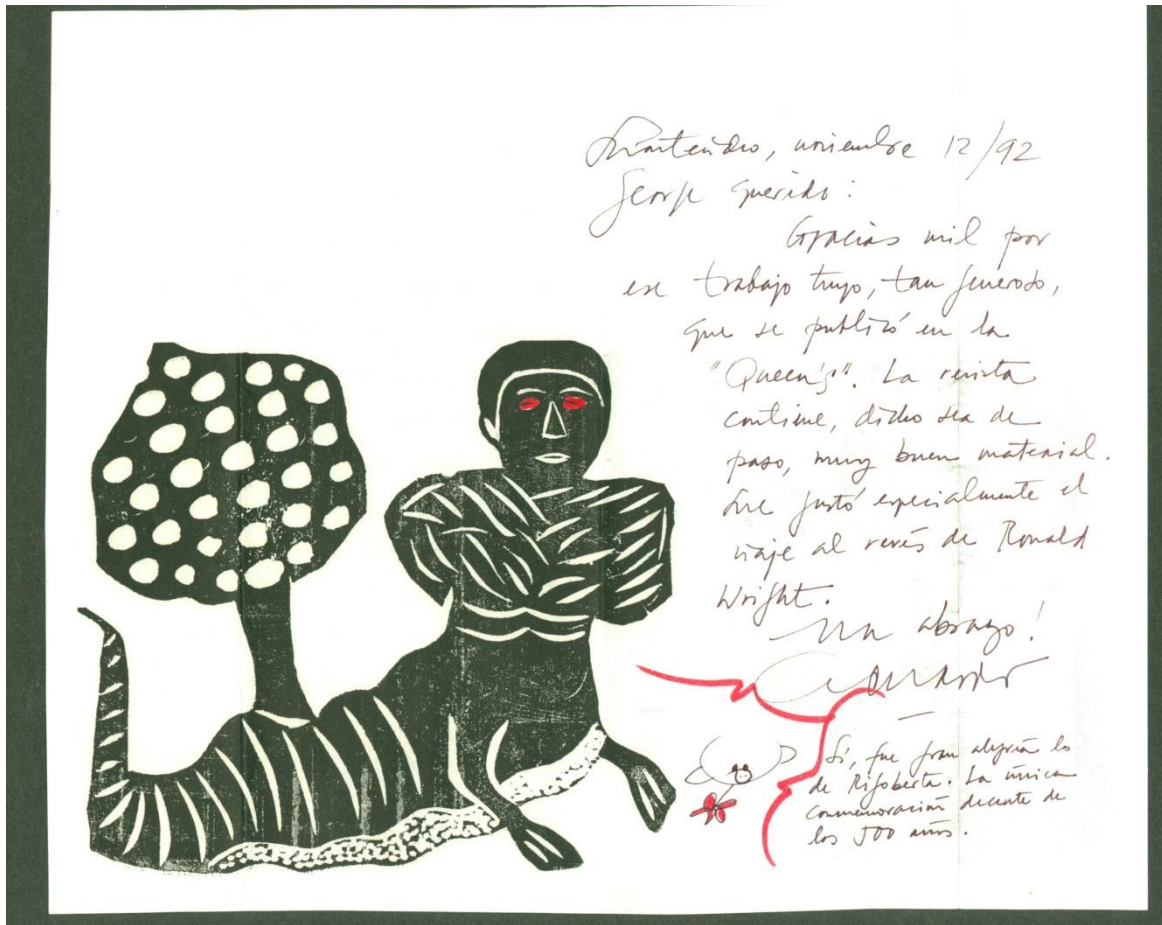 Montevideo, noviembre 12/92
George querido:
Gracias mil por
ese trabajo tuyo, tan generoso,
que se publicó en la
"Queen's". La revista
contiene, dicho sea de
paso, muy buen material.
Me gustó especialmente el
viaje al revés de Ronald
Wright.
Un abrazo!
Sí, fue gran alegría lo
de Rigoberta. La única
conmemoración decente de
los 500 años.